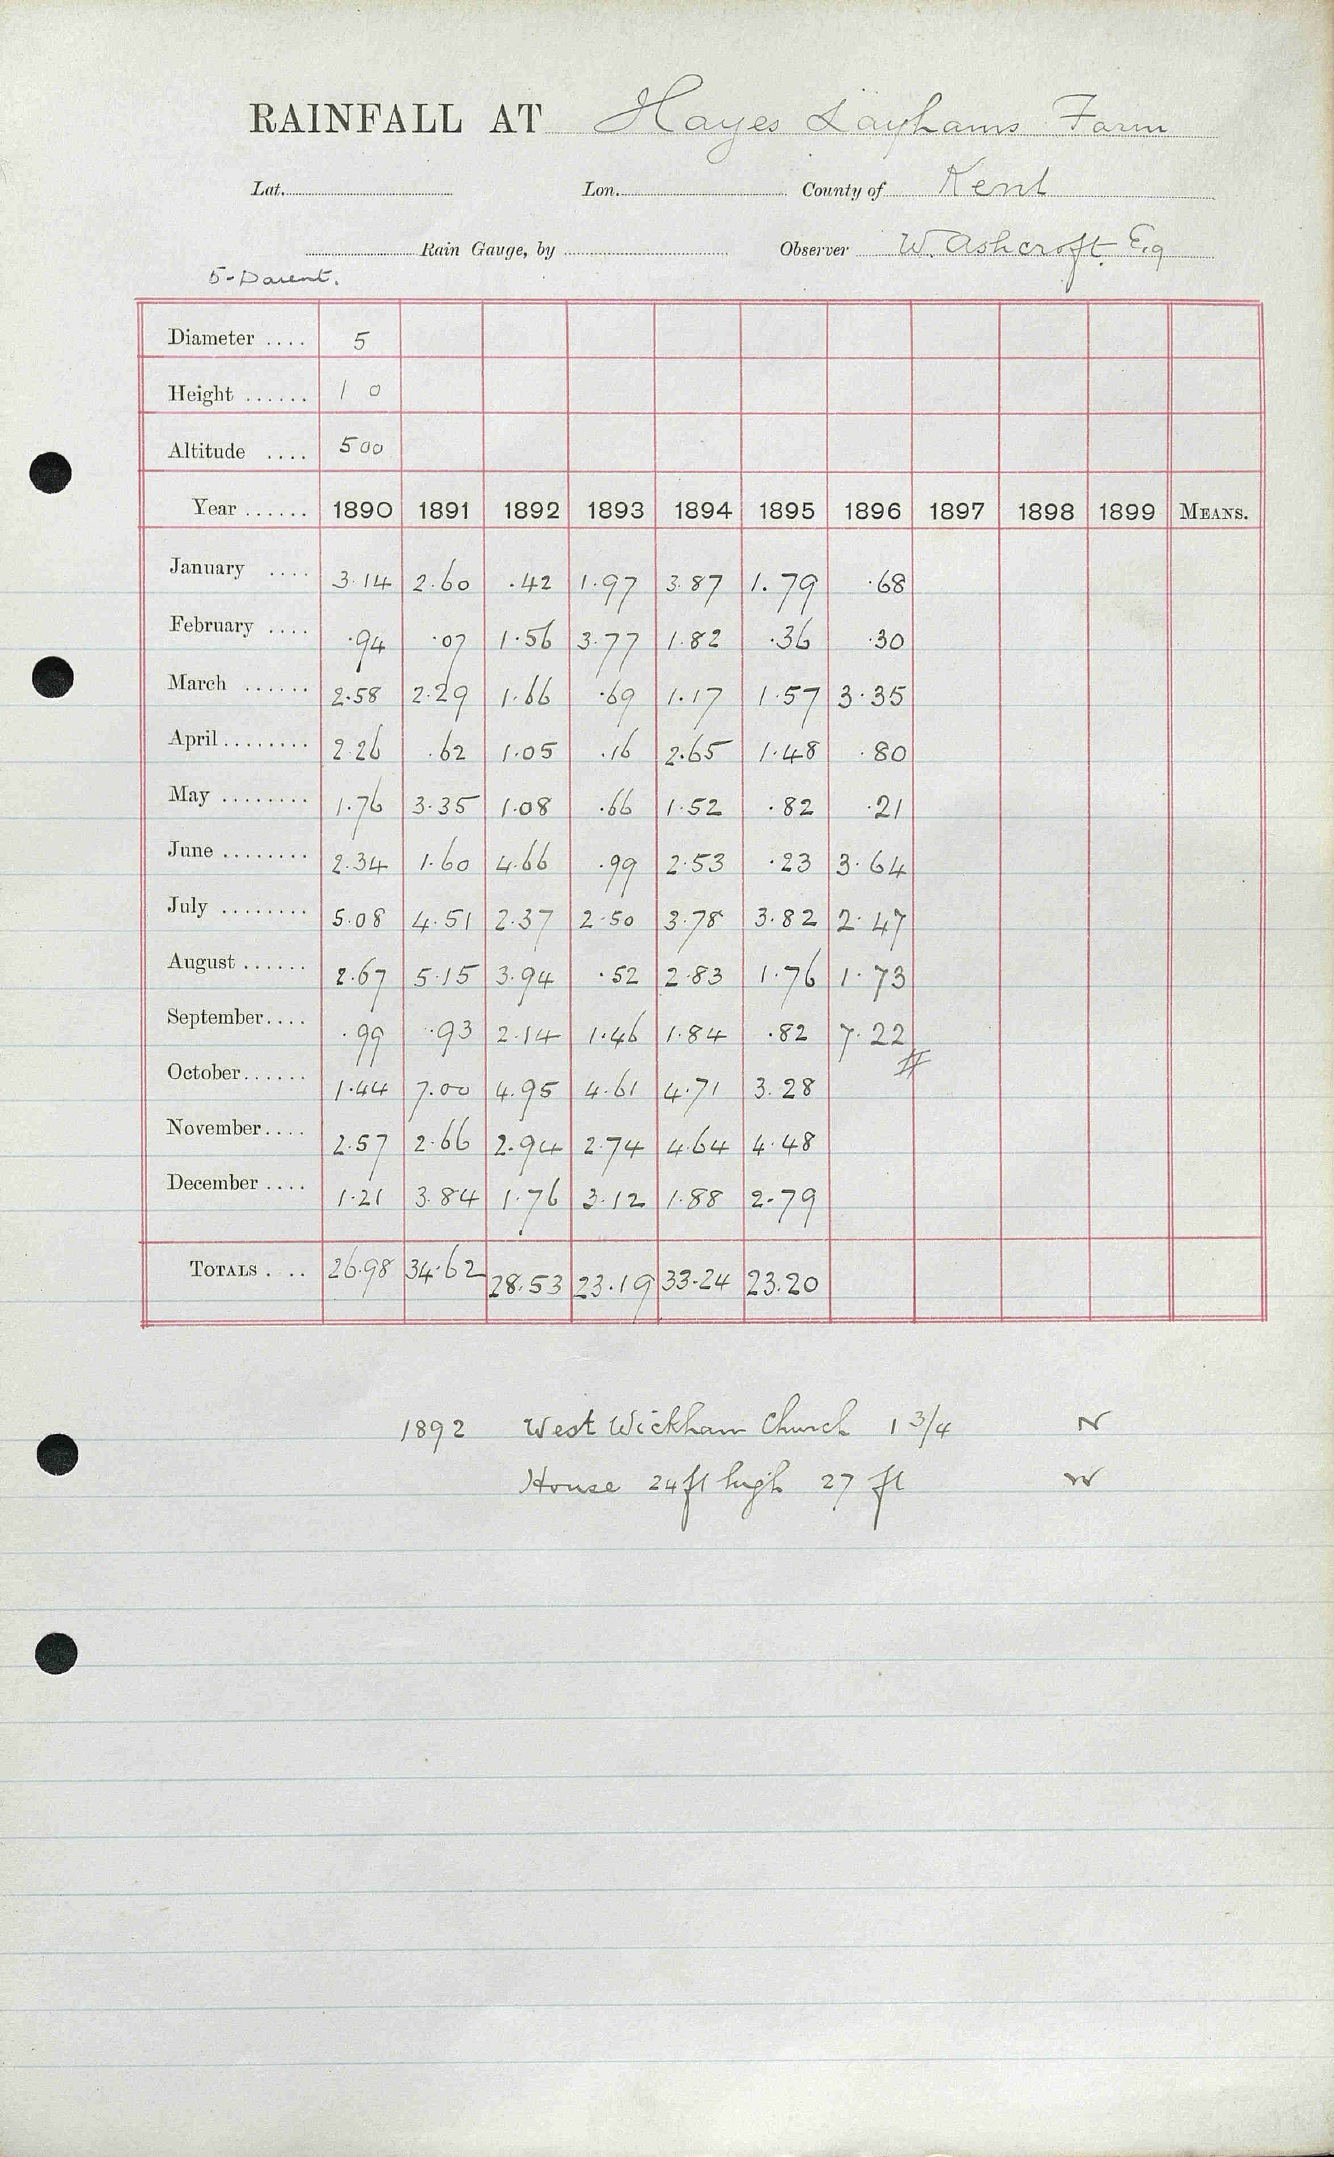 RAINFALL AT Hayes Layhams Farm
Lat. Lon. County of Kent
Rain Gauge, by Observer W. Ashcroft Esq
5-Darent.
Diameter .... 5
Height ...... 1 0
Altitude .... 500
Year ...... 1890 1891 1892 1893 1894 1895 1896 1897 1898 1899 MEANS.
January .... 3.14 2.60 .42 1.97 3.87 1.79 .68
February .... .94 .07 1.56 3.77 1.82 .36 .30
March ...... 2.58 2.29 1.66 .69 1.17 1.57 3.35
April ........ 2.26 .62 1.05 .16 2.65 1.48 .80
May ........ 1.76 3.35 1.08 .66 1.52 .82 .21
June ........ 2.34 1.60 4.66 .99 2.53 .23 3.64
July ........ 5.08 4.51 2.37 2.50 3.78 3.82 2.47
August ...... 2.67 5.15 3.94 .52 2.83 1.76 1.73
September .... .99 .93 2.14 1.46 1.84 .82 7.22
October ...... 1.44 7.00 4.95 4.61 4.71 3.28
November .... 2.57 2.66 2.94 2.74 4.64 4.48
December .... 1.21 3.84 1.76 3.12 1.88 2.79
TOTALS .... 26.98 34.62 28.53 23.19 33.24 23.20
1892 West Wickham Church 1 3/4 N
House 24ft high 27 ft W